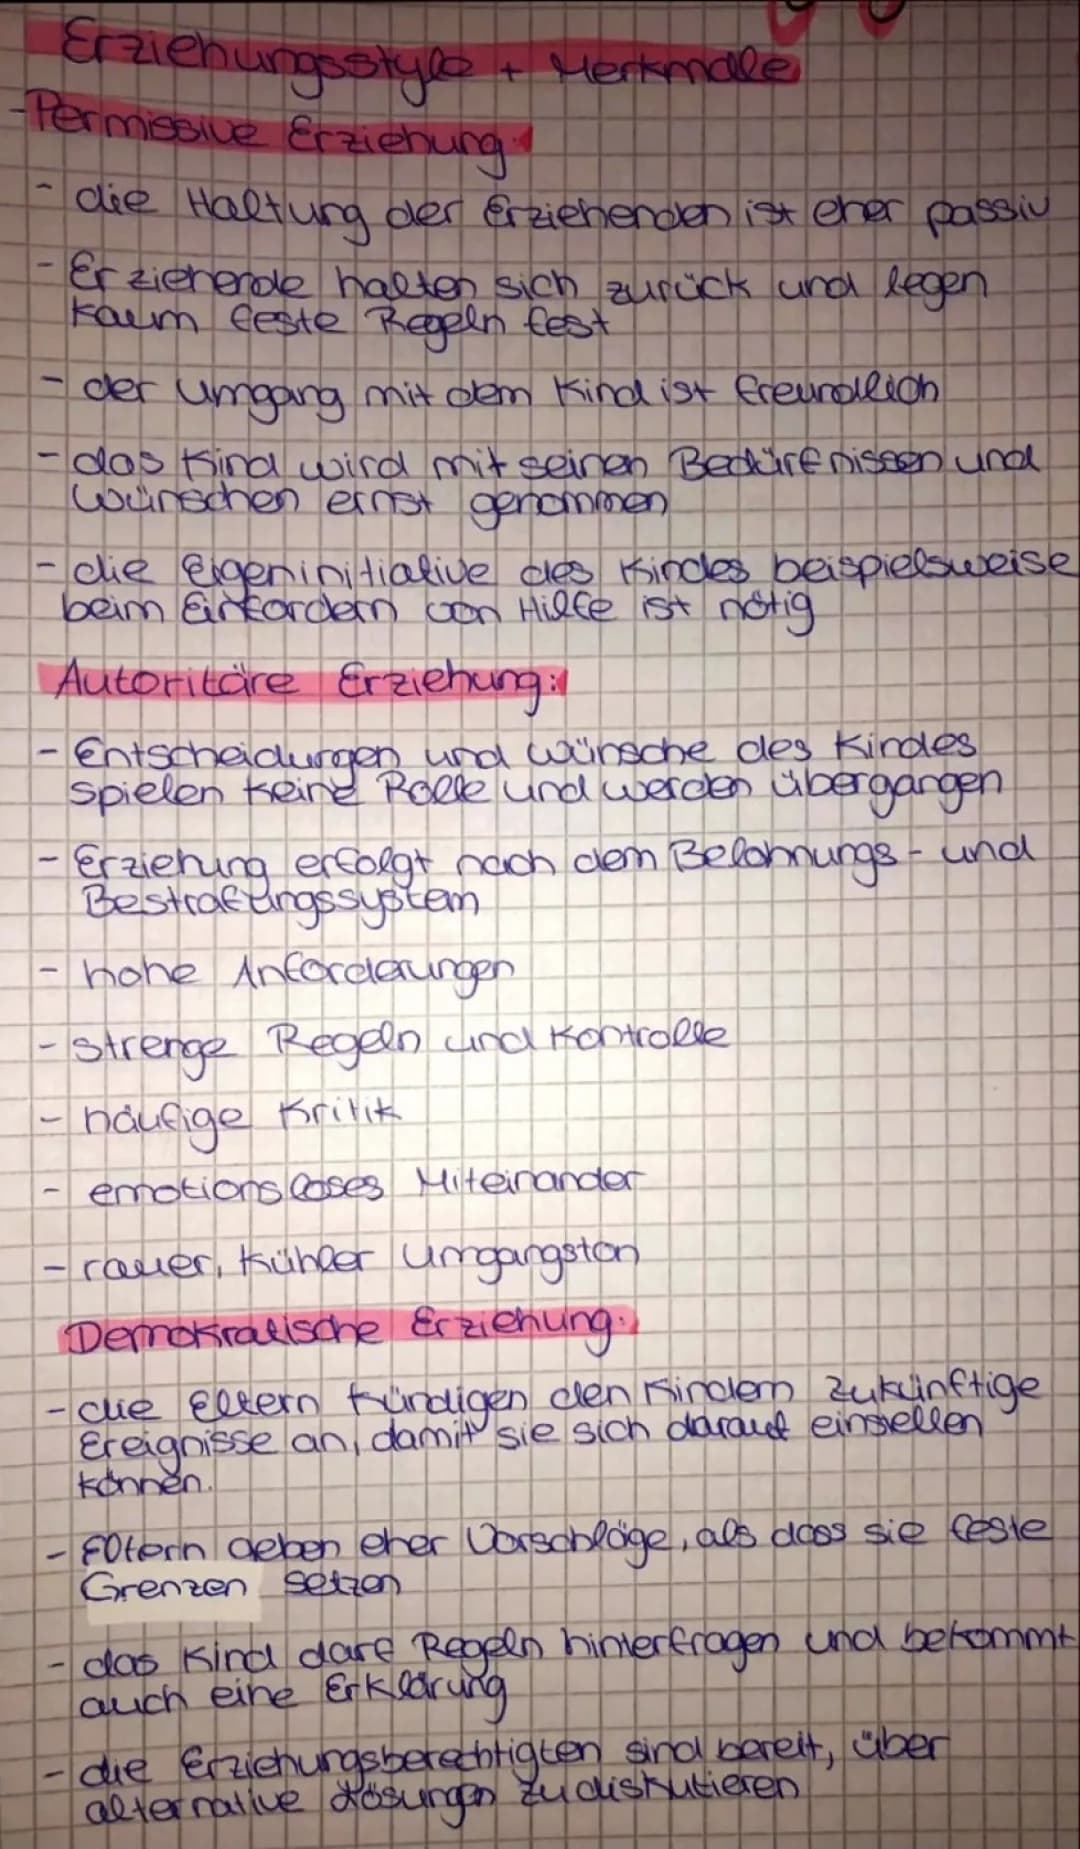 Erziehungsstyle + Merkmale
- Permissive Erziehung:
- die Haltung der Erziehenden ist eher passiv
- Erziehende halten sich zurück und legen
kaum feste Regeln fest
- der Umgang mit dem Kind ist freundlich
- das Kind wird mit seinen Bedürfnissen und
Wünschen ernst genommen
- die Eigeninitiative des Kindes beispielsweise
beim Einfordern von Hilfe ist nötig
Autoritäre Erziehung:
- Entscheidungen und Wünsche des Kindes
spielen keine Rolle und werden übergangen
- Erziehung erfolgt nach dem Belohnungs- und
Bestrafungssystem
- hohe Anforderungen
- strenge Regeln und Kontrolle
- häufige Kritik
- emotionsloses Miteinander
- rauer, kühler Umgangston
Demokratische Erziehung:
- die Eltern kündigen den Kindern zukünftige
Ereignisse an, damit sie sich darauf einstellen
können.
- Eltern geben eher Vorschläge, als dass sie feste
Grenzen setzen
- das Kind darf Regeln hinterfragen und bekommt
auch eine Erklärung
- die Erziehungsberechtigten sind bereit, über
alternative Lösungen zu diskutieren